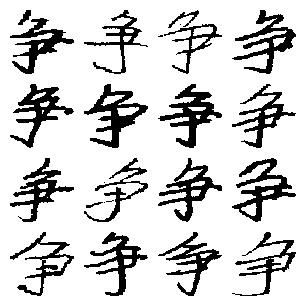 争争争争
争争争争
争争争争
争争争争